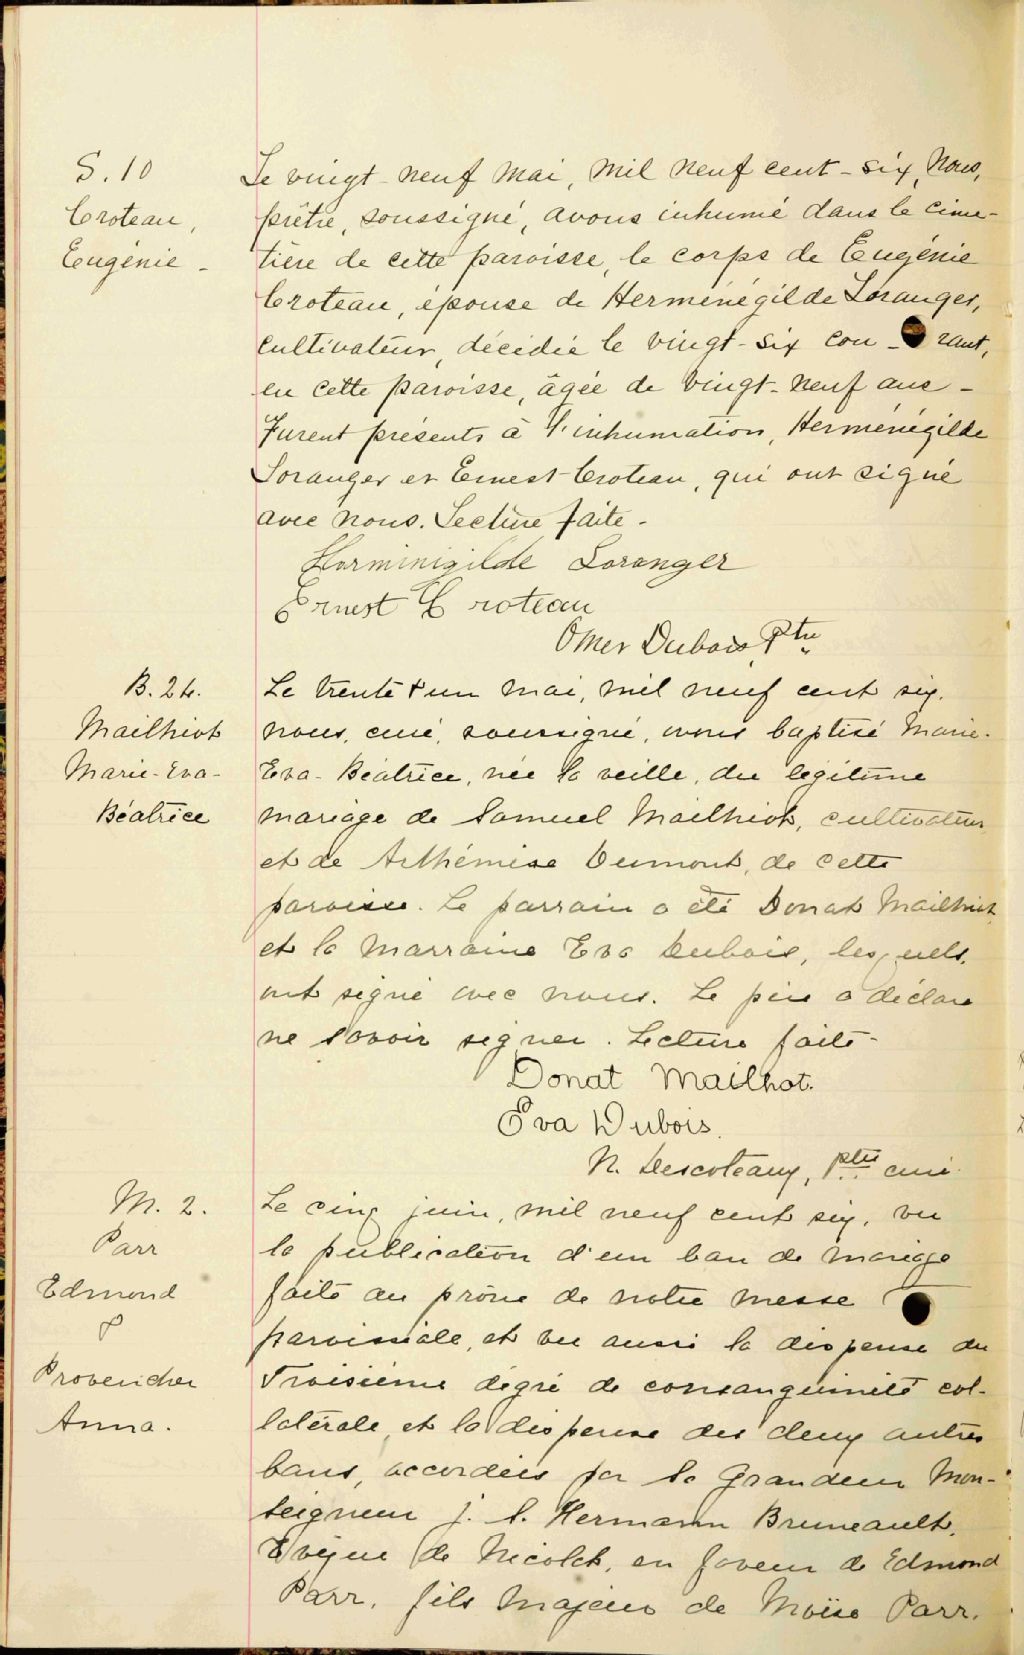 S. 10
Croteau,
Eugénie -
Le vingt-neuf mai, mil neuf cent-six, nous,
prêtre, soussigné, avons inhumé dans le cime-
tière de cette paroisse, le corps de Eugénie
Croteau, épouse de Herménégilde Loranger,
cultivateur, décédée le vingt-six cou-rant,
en cette paroisse, âgée de vingt-neuf ans -
Furent présents à l'inhumation, Herménégilde
Loranger et Ernest Croteau, qui ont signé
avec nous. Lecture faite -
Herminigilde Loranger
Ernest Croteau
Omer Dubois, Ptre
B. 24.
Mailhiot
Marie-Eva-
Béatrice
Le trente & un mai, mil neuf cent six,
nous, curé, soussigné, avons baptisé Marie-
Eva-Béatrice, née la veille, du légitime
mariage de Samuel Mailhiot, cultivateur
et de Arthémise Dumont, de cette
paroisse. Le parrain a été Donat Mailhiot
et la marraine Eva Dubois, lesquels,
ont signé avec nous. Le père a déclaré
ne savoir signer. Lecture faite -
Donat Mailhot.
Eva Dubois.
N. Descoteaux, Ptre curé.
M. 2.
Parr
Edmond
&
Provencher
Anna.
Le cinq juin, mil neuf cent six, vu
la publication d'un ban de mariage
faite au prône de notre messe
paroissiale, et vu aussi la dispense du
Troisième dégré de consanguinité col-
latérale, et la dispense des deux autres
bans, accordées par Sa Grandeur Mon-
seigneur J. S. Hermann Bruneault,
Evêque de Nicolet, en faveur de Edmond
Parr, fils majeur de Moïse Parr,